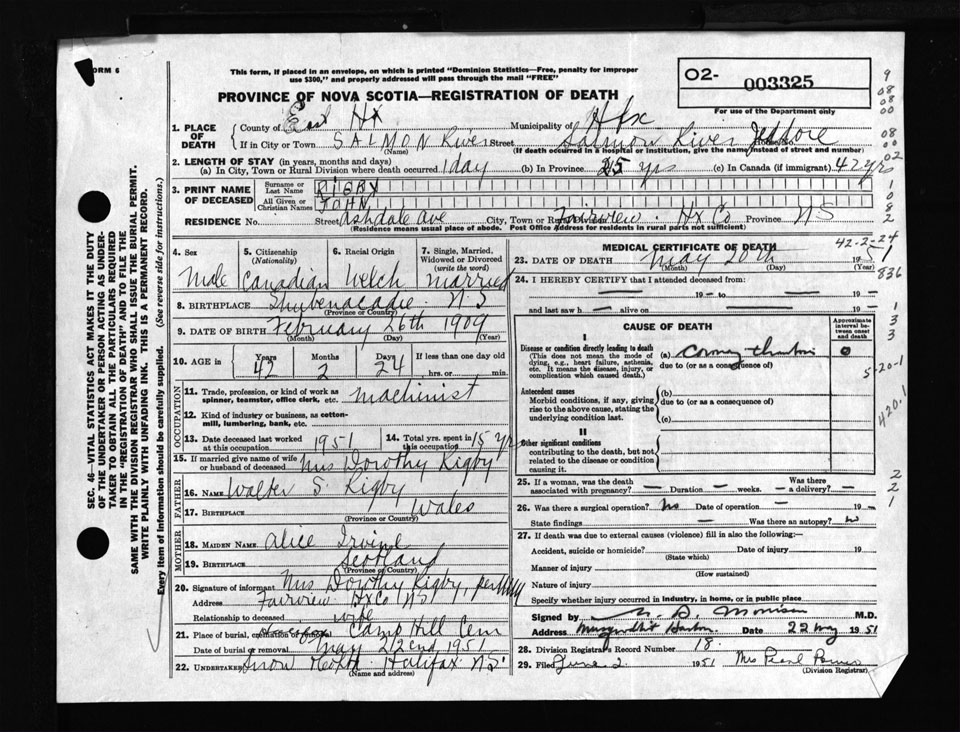 FORM 6
This form, if placed in an envelope, on which is printed "Dominion Statistics—Free, penalty for improper
use $300," and properly addressed will pass through the mail "FREE"
O2- 003325
For use of the Department only
PROVINCE OF NOVA SCOTIA—REGISTRATION OF DEATH
1. PLACE OF DEATH
County of East Hx Municipality of Hfx
If in City or Town SALMON River Street Salmon River Jeddore
(Name) (If death occurred in a hospital or institution, give the name instead of street and number)
2. LENGTH OF STAY (in years, months and days)
(a) In City, Town or Rural Division where death occurred 1 day (b) In Province 25 yrs (c) In Canada (if immigrant) 42 yrs
3. PRINT NAME OF DECEASED
Surname or Last Name RIGBY
All Given or Christian Names JOHN
RESIDENCE No. Street Ashdale Ave City, Town or Rural Division Fairview Hx Co Province NS
(Residence means usual place of abode. Post Office Address for residents in rural parts not sufficient)
4. Sex Male
5. Citizenship (Nationality) Canadian
6. Racial Origin Welch
7. Single, Married, Widowed or Divorced (write the word) Married
8. BIRTHPLACE Shubenacadie N S
(Province or Country)
9. DATE OF BIRTH February 26th 1909
(Month) (Day) (Year)
10. AGE in Years 42 Months 2 Days 24 If less than one day old hrs. or min.
OCCUPATION
11. Trade, profession, or kind of work as spinner, teamster, office clerk, etc. Machinist
12. Kind of industry or business, as cotton-mill, lumbering, bank, etc.
13. Date deceased last worked at this occupation 1951
14. Total yrs. spent in this occupation 15 yrs
15. If married give name of wife or husband of deceased Mrs Dorothy Rigby
FATHER
16. NAME Walter S. Rigby
17. BIRTHPLACE Wales
(Province or Country)
MOTHER
18. MAIDEN NAME Alice Irvine
19. BIRTHPLACE Scotland
(Province or Country)
20. Signature of informant Mrs Dorothy Rigby
Address Fairview Hx Co N S
Relationship to deceased wife
21. Place of burial, cremation or removal Camp Hill Cem
Date of burial or removal May 22nd 1951
22. Undertaker Snow Halifax N.S.
(Name and address)
MEDICAL CERTIFICATE OF DEATH
23. DATE OF DEATH May 20th 1951
(Month) (Day) (Year)
24. I HEREBY CERTIFY that I attended deceased from: — 19 — to — 19 —
and last saw h — alive on — 19 —
CAUSE OF DEATH
Approximate interval between onset and death
I
Disease or condition directly leading to death (a)
(This does not mean the mode of dying, e.g., heart failure, asthenia, etc. It means the disease, injury, or complication which caused death.)
due to (or as a consequence of)
0
Antecedent causes (b)
Morbid conditions, if any, giving rise to the above cause, stating the underlying condition last.
due to (or as a consequence of)
(c)
II
Other significant conditions
contributing to the death, but not related to the disease or condition causing it.
25. If a woman, was the death associated with pregnancy? — Duration — weeks. Was there a delivery? —
26. Was there a surgical operation? No Date of operation — 19 —
State findings — Was there an autopsy? no
27. If death was due to external causes (violence) fill in also the following:
Accident, suicide or homicide? Date of injury 19
(State which)
Manner of injury
(How sustained)
Nature of injury
Specify whether injury occurred in industry, in home, or in public place
Signed by Morrison M.D.
Address Musquodoboit Harbour Date 22 May 1951
28. Division Registrar's Record Number 18.
29. Filed June 2 1951 Mrs Pearl
(Division Registrar)
SEC. 46—VITAL STATISTICS ACT MAKES IT THE DUTY
OF THE UNDERTAKER OR PERSON ACTING AS UNDER-
TAKER TO OBTAIN ALL THE PARTICULARS REQUIRED
IN THE "REGISTRATION OF DEATH" AND TO FILE THE
SAME WITH THE DIVISION REGISTRAR WHO SHALL ISSUE THE BURIAL PERMIT.
WRITE PLAINLY WITH UNFADING INK. THIS IS A PERMANENT RECORD.
Every item of information should be carefully supplied. (See reverse side for instructions.)
42-2-24
836
5-20-1
420.1